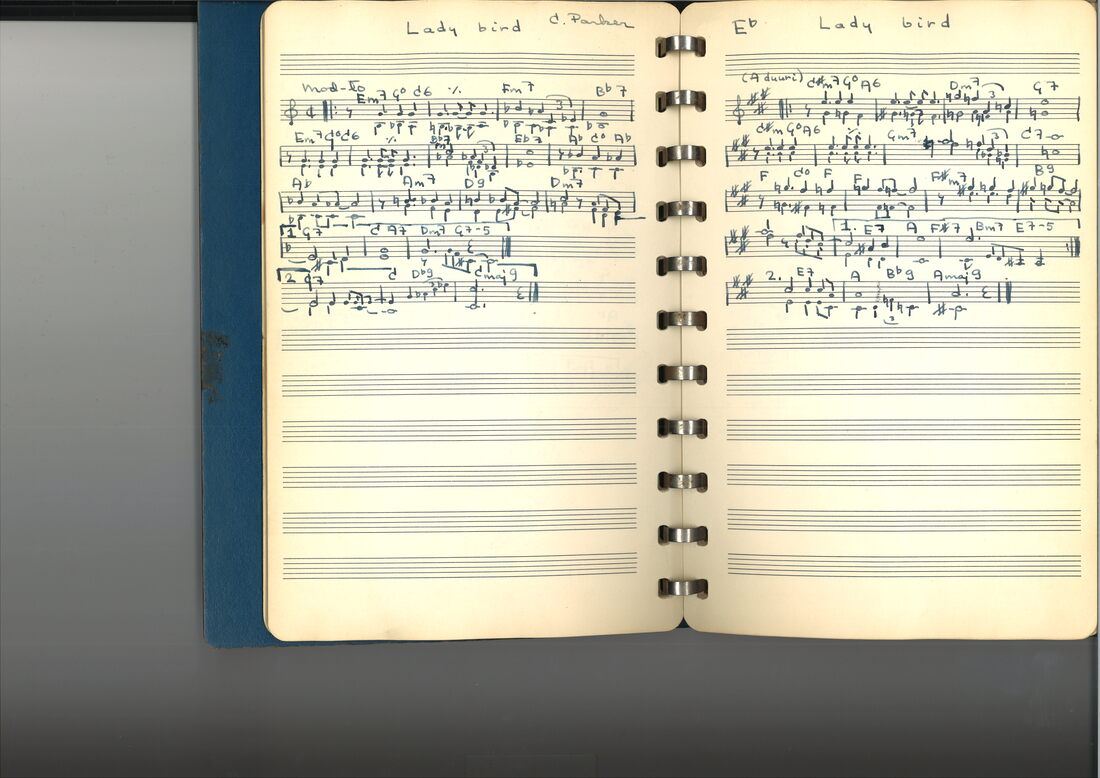 Lady bird C. Parker
mod-to
Em7 G° C6 ٪ Fm7 Bb7
Em7 G° C6 ٪ Bb7 Eb7 Ab C° Ab
Ab Am7 D9 Dm7
1. G7 C A7 Dm7 G7-5
2. G7 C Db9 Cmaj9
Eb Lady bird
(A duuri) C#m7 G° A6 Dm7 G7
C#m G° A6 ٪ Gm7 C7
F C° F F F#m7 B9
1. E7 A F#7 Bm7 E7-5
2. E7 A Bb9 Amaj9